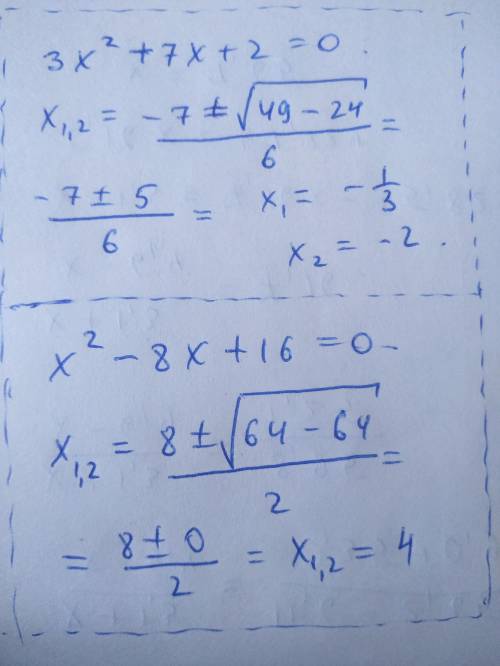 3x² + 7x + 2 = 0.
x₁,₂ = (-7 ± √(49 - 24))/6 =
(-7 ± 5)/6 = x₁ = -1/3
x₂ = -2.
x² - 8x + 16 = 0 -
x₁,₂ = (8 ± √(64 - 64))/2 =
= (8 ± 0)/2 = x₁,₂ = 4